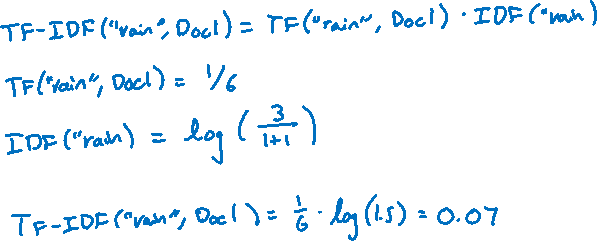 TF-IDF("rain", Doc1) = TF("rain", Doc1) · IDF("rain)
TF("rain", Doc1) = 1/6
IDF("rain) = log(3/(1+1))
TF-IDF("rain", Doc1) = 1/6 · log(1.5) = 0.07